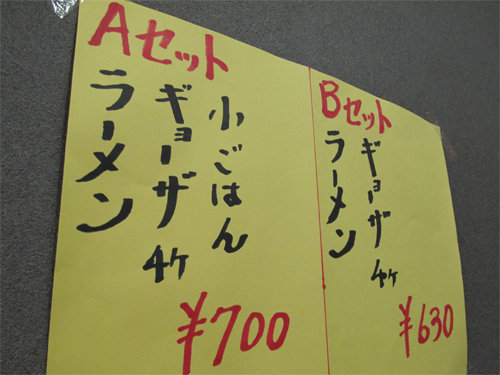 Aセット
ラーメン
ギョーザ 4ケ
小ごはん
¥700
Bセット
ラーメン
ギョーザ 4ケ
¥630